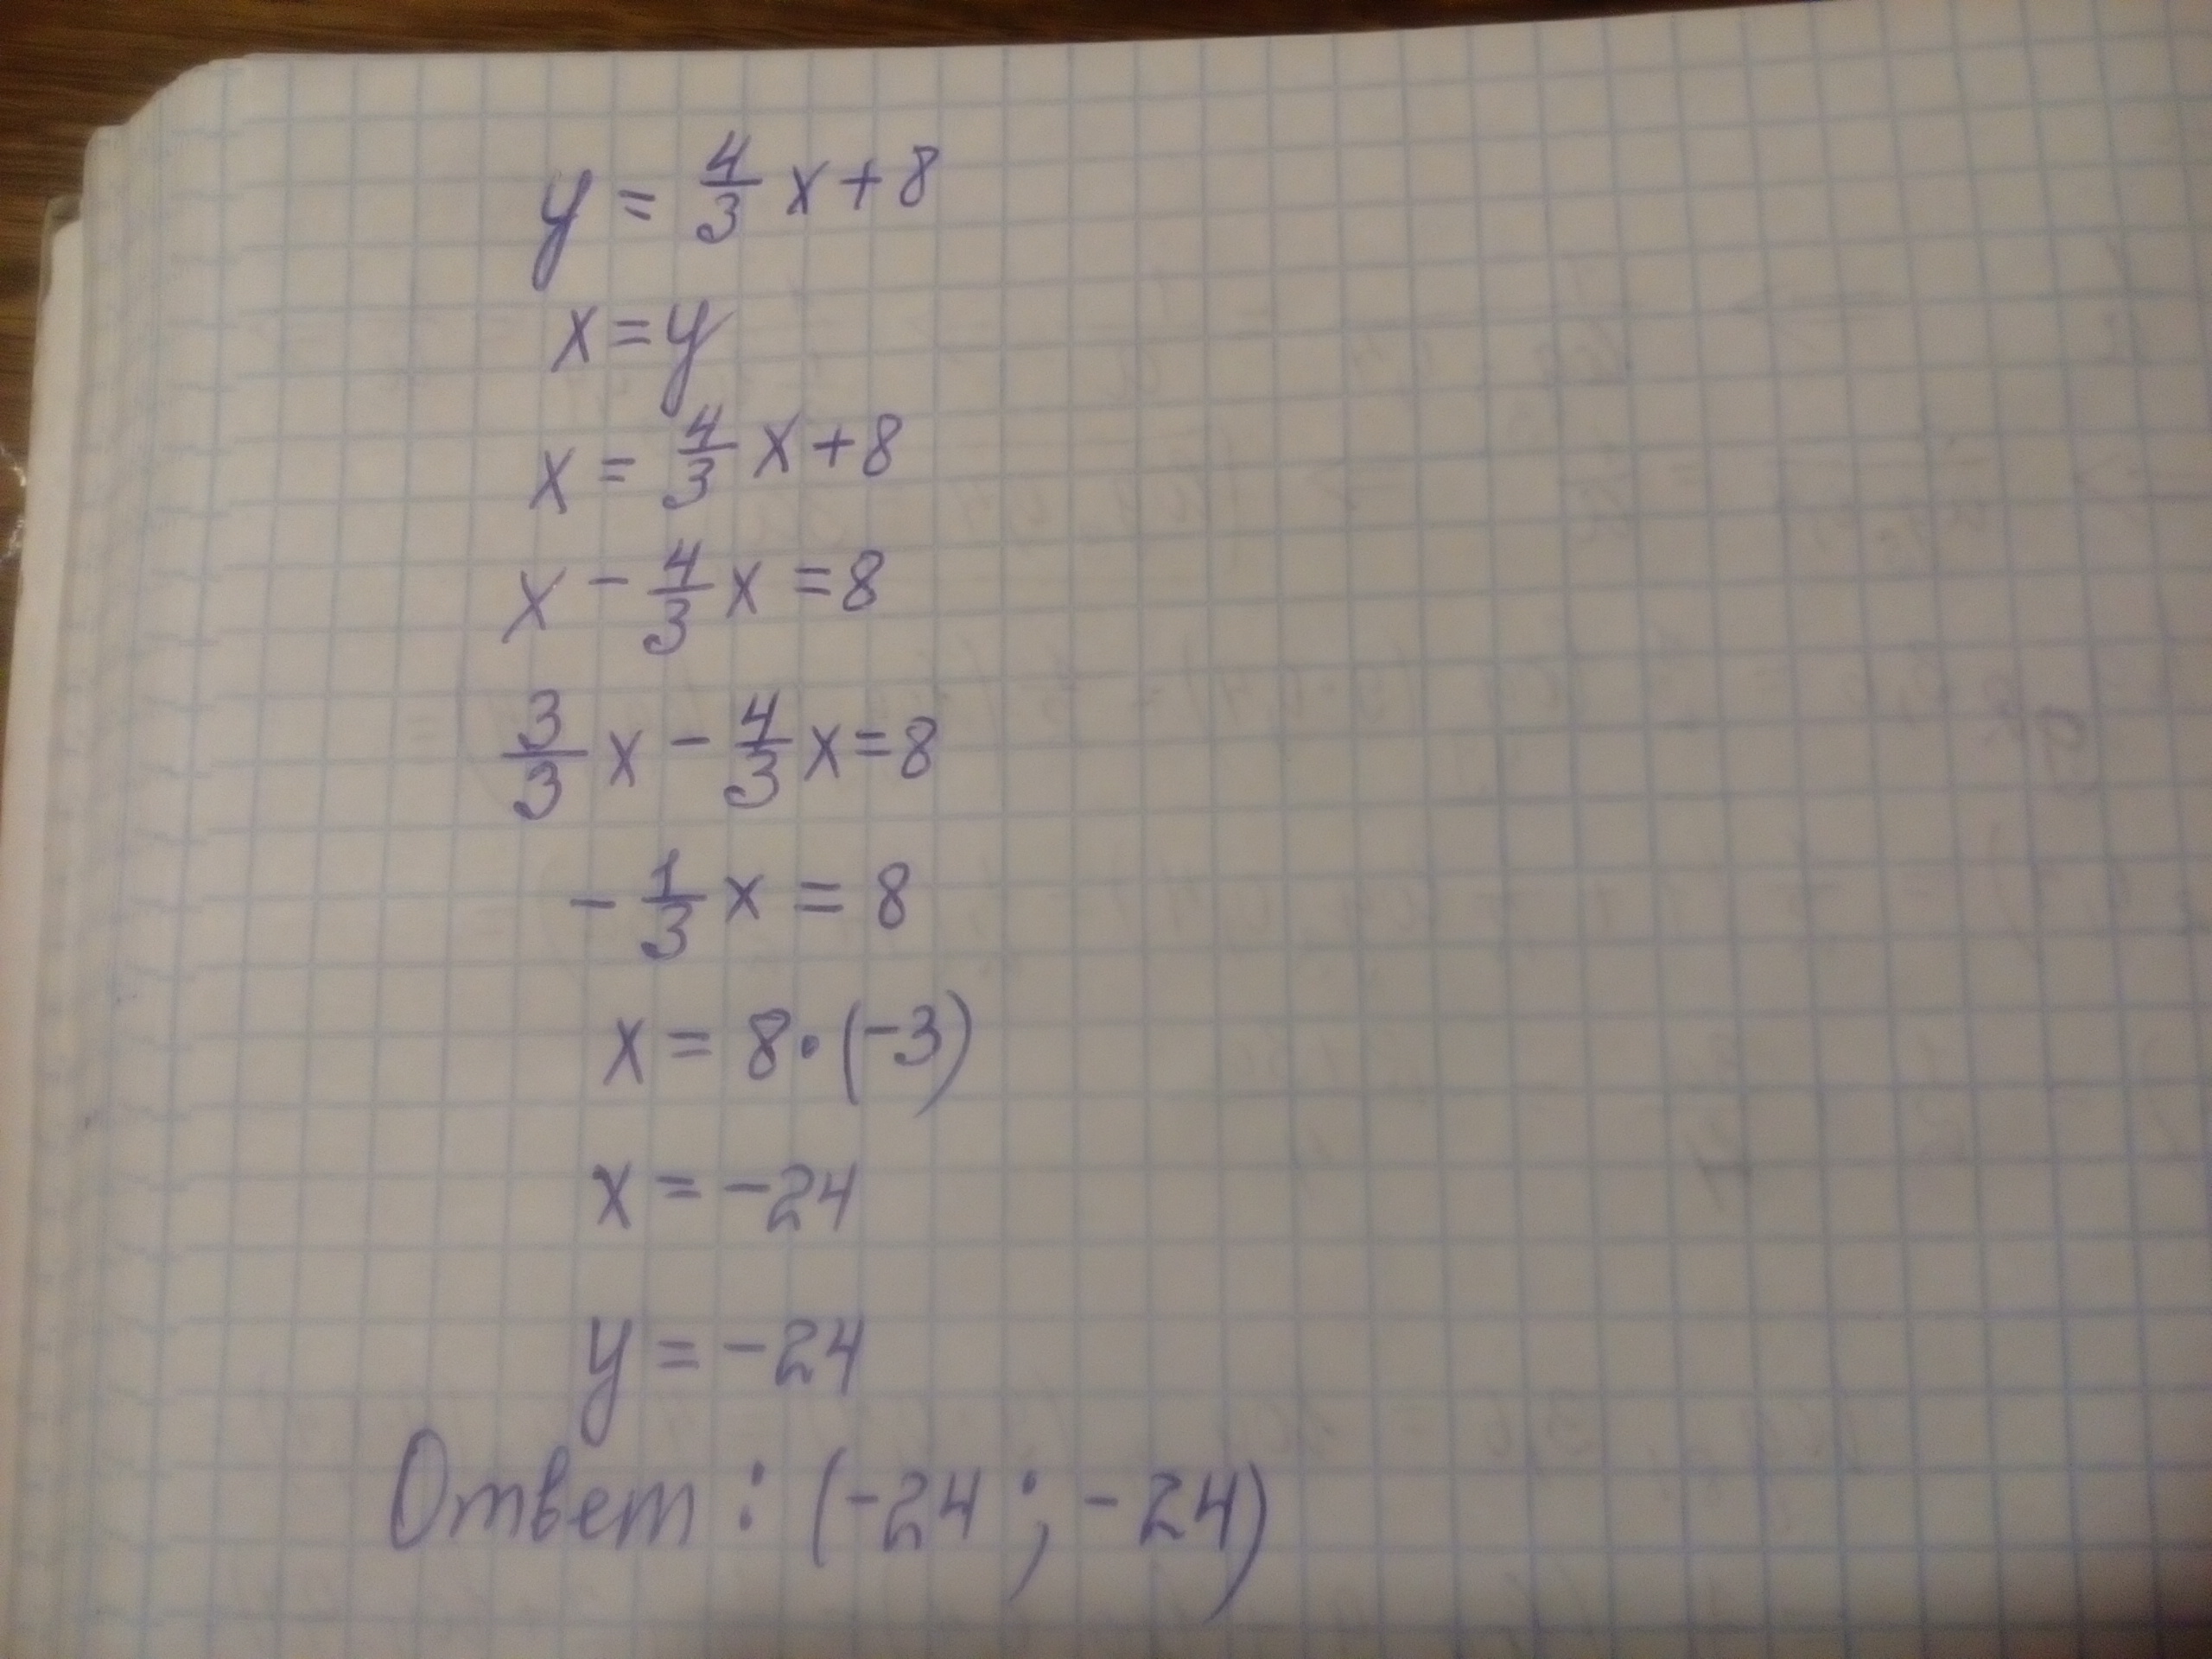 y = 4/3 x + 8
x = y
x = 4/3 x + 8
x - 4/3 x = 8
3/3 x - 4/3 x = 8
- 1/3 x = 8
x = 8 · (-3)
x = -24
y = -24
Ответ: (-24 ; -24)